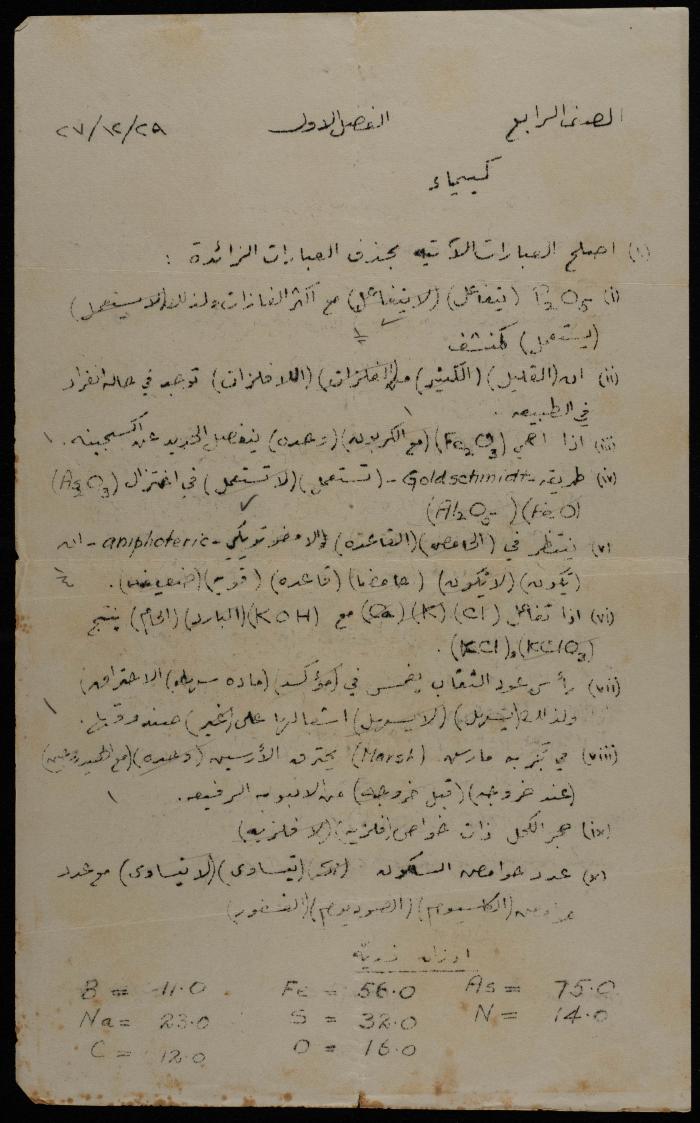 الصف الرابع الفصل الاول ٢٧/١٢/٢٩
كيمياء
(١) اصلح العبارات الآتيه بحذف العبارات الزائدة :
(i) P2O5 (يتفاعل) (لا يتفاعل) مع اكثر الغازات ولذلك (لا يستعمل)
(يستعمل) كمنشف
(ii) ان (القليل) (الكثير) من (الفلزات) (اللافلزات) توجد في حاله انفراد
في الطبيعه .
(iii) اذا احمي (Fe2O3) (مع الكربون) (وحده) ينفصل الحديد عن اكسجينه .
(iv) طريقه - Goldschmidt - (تستعمل) (لا تستعمل) في اختزال (As2O3)
(FeO) (Al2O3)
(v) ينتظر في (الحامض) (القاعده) - amphoteric - ان
(يكون) (لا يكون) (حامضا) (قاعده) (قويه) (ضعيفه) .
(vi) اذا تفاعل (Cl) (K) (Ca) مع (KOH) (البارد) (الحام) ينتج
(KClO3) , (KCl) .
(vii) رأس عود الثقاب يغمس في (مؤكسد) (ماده سهله) الاحتراق)
ولذلك (يسهل) (لا يسهل) اشتعالها على
(viii) في تجربه مارس (Marsh) يحترق الأرسين (وحده) (مع الهيدروجين)
(عند خروجه) (قبل خروجه) من الانبوبه الرفيعه .
(ix) حجر الكحل ذات خواص (فلزيه) (لا فلزيه)
(x) عدد حوامض السلكون (تتساوى) (لا تتساوى) مع عدد
حوامض (الكلسيوم) (الصوديوم) (الفسفور)
اوزان ذريّة
B = 11.0 Fe = 56.0 As = 75.0
Na = 23.0 S = 32.0 N = 14.0
C = 12.0 O = 16.0